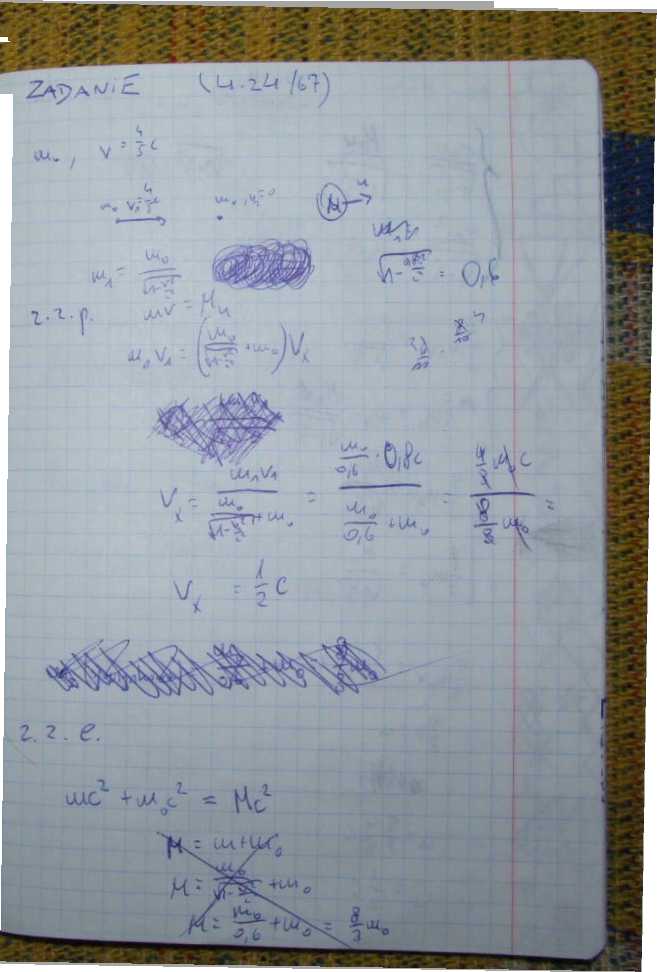 ZADANIE (4.24/67)
m₀, v = 4/5 c
m₀ v₁=4/5c m₀, v₂=0 M → u
m₁ = m₀/√(1-v²/c²) √(1-v²/c²) = 0,6
z.z.p. mv = Mu
m₀v₁ = (m₀/√(1-v²/c²) + m₀) Vₓ
Vₓ = m₁v₁/(m₀/√(1-v²/c²) + m₀) = (m₀/0,6 · 0,8c)/(m₀/0,6 + m₀) = =
Vₓ = 1/2 c
z.z.e.
mc² + m₀c² = Mc²
M = m + m₀
M = m₀/√(1-v²/c²) + m₀
M = m₀/0,6 + m₀ = 8/3 m₀